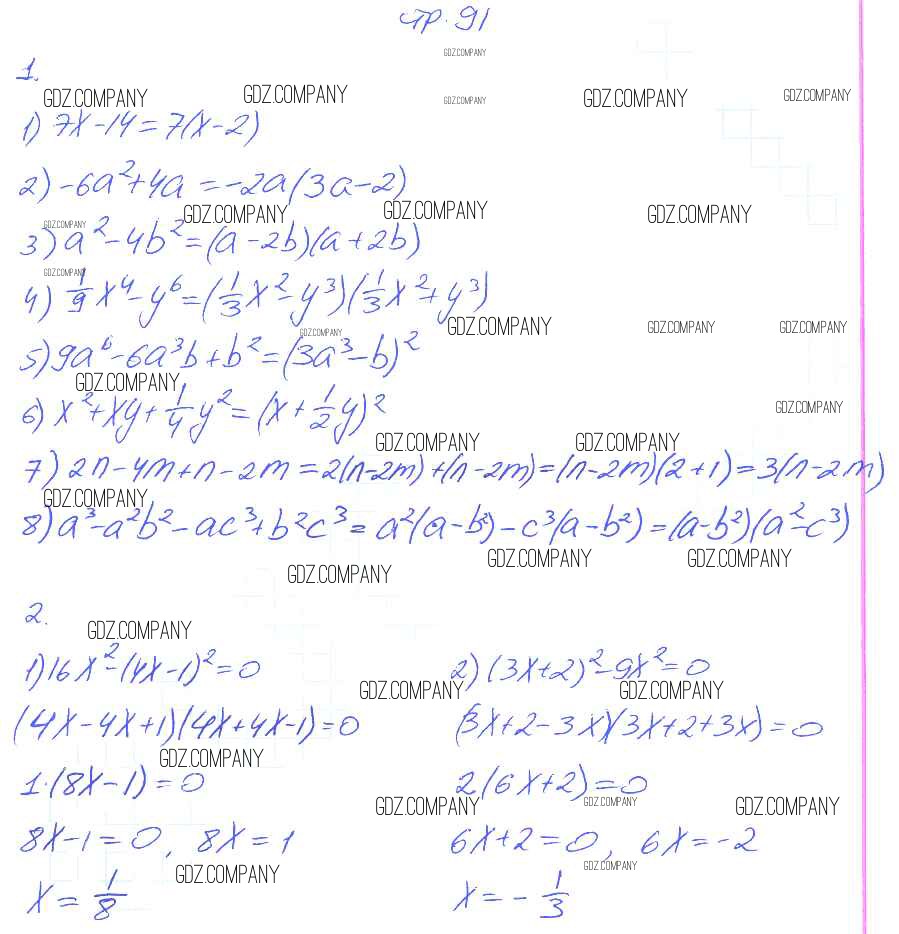 стр. 91
GDZ.COMPANY
1.
GDZ.COMPANY GDZ.COMPANY GDZ.COMPANY GDZ.COMPANY GDZ.COMPANY
1) 7x-14=7(x-2)
2) -6a²+4a=-2a(3a-2)
GDZ.COMPANY GDZ.COMPANY GDZ.COMPANY GDZ.COMPANY
3) a²-4b²=(a-2b)(a+2b)
GDZ.COMPANY
4) 1/9x⁴-y⁶=(1/3x²-y³)(1/3x²+y³)
GDZ.COMPANY GDZ.COMPANY GDZ.COMPANY GDZ.COMPANY
5) 9a⁶-6a³b+b²=(3a³-b)²
GDZ.COMPANY
6) x²+xy+1/4y²=(x+1/2y)²
GDZ.COMPANY
GDZ.COMPANY GDZ.COMPANY
7) 2n-4m+n-2m=2(n-2m)+(n-2m)=(n-2m)(2+1)=3(n-2m)
GDZ.COMPANY
8) a³-a²b²-ac³+b²c³=a²(a-b²)-c³(a-b²)=(a-b²)(a²-c³)
GDZ.COMPANY GDZ.COMPANY GDZ.COMPANY
2.
GDZ.COMPANY
1) 16x²-(4x-1)²=0
(4x-4x+1)(4x+4x-1)=0
GDZ.COMPANY
1·(8x-1)=0
8x-1=0, 8x=1
GDZ.COMPANY
x=1/8
2) (3x+2)²-9x²=0
GDZ.COMPANY GDZ.COMPANY
(3x+2-3x)(3x+2+3x)=0
2(6x+2)=0
GDZ.COMPANY GDZ.COMPANY GDZ.COMPANY
6x+2=0, 6x=-2
GDZ.COMPANY
x=-1/3